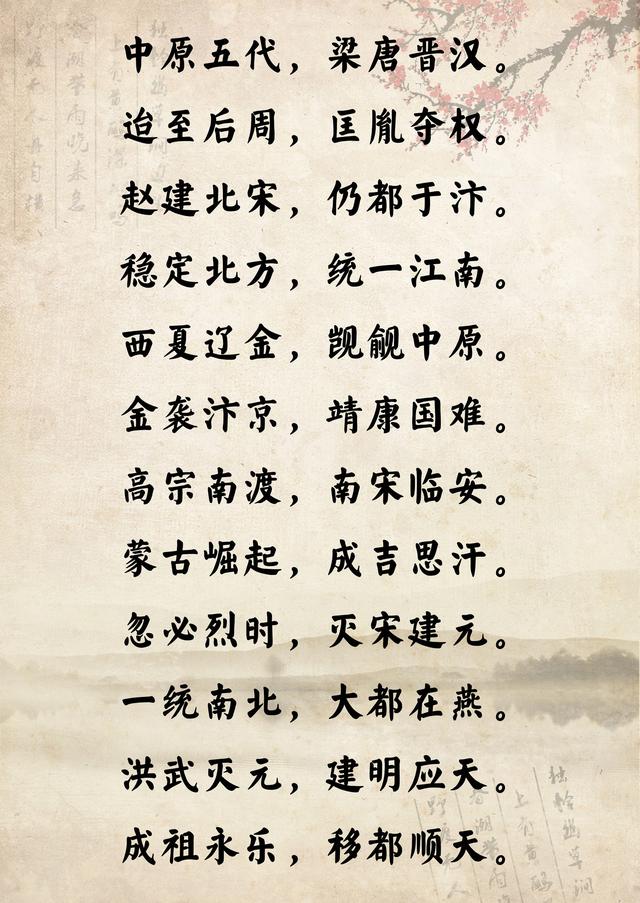 中原五代，梁唐晋汉。
迨至后周，匡胤夺权。
赵建北宋，仍都于汴。
稳定北方，统一江南。
西夏辽金，觊觎中原。
金袭汴京，靖康国难。
高宗南渡，南宋临安。
蒙古崛起，成吉思汗。
忽必烈时，灭宋建元。
一统南北，大都在燕。
洪武灭元，建明应天。
成祖永乐，移都顺天。